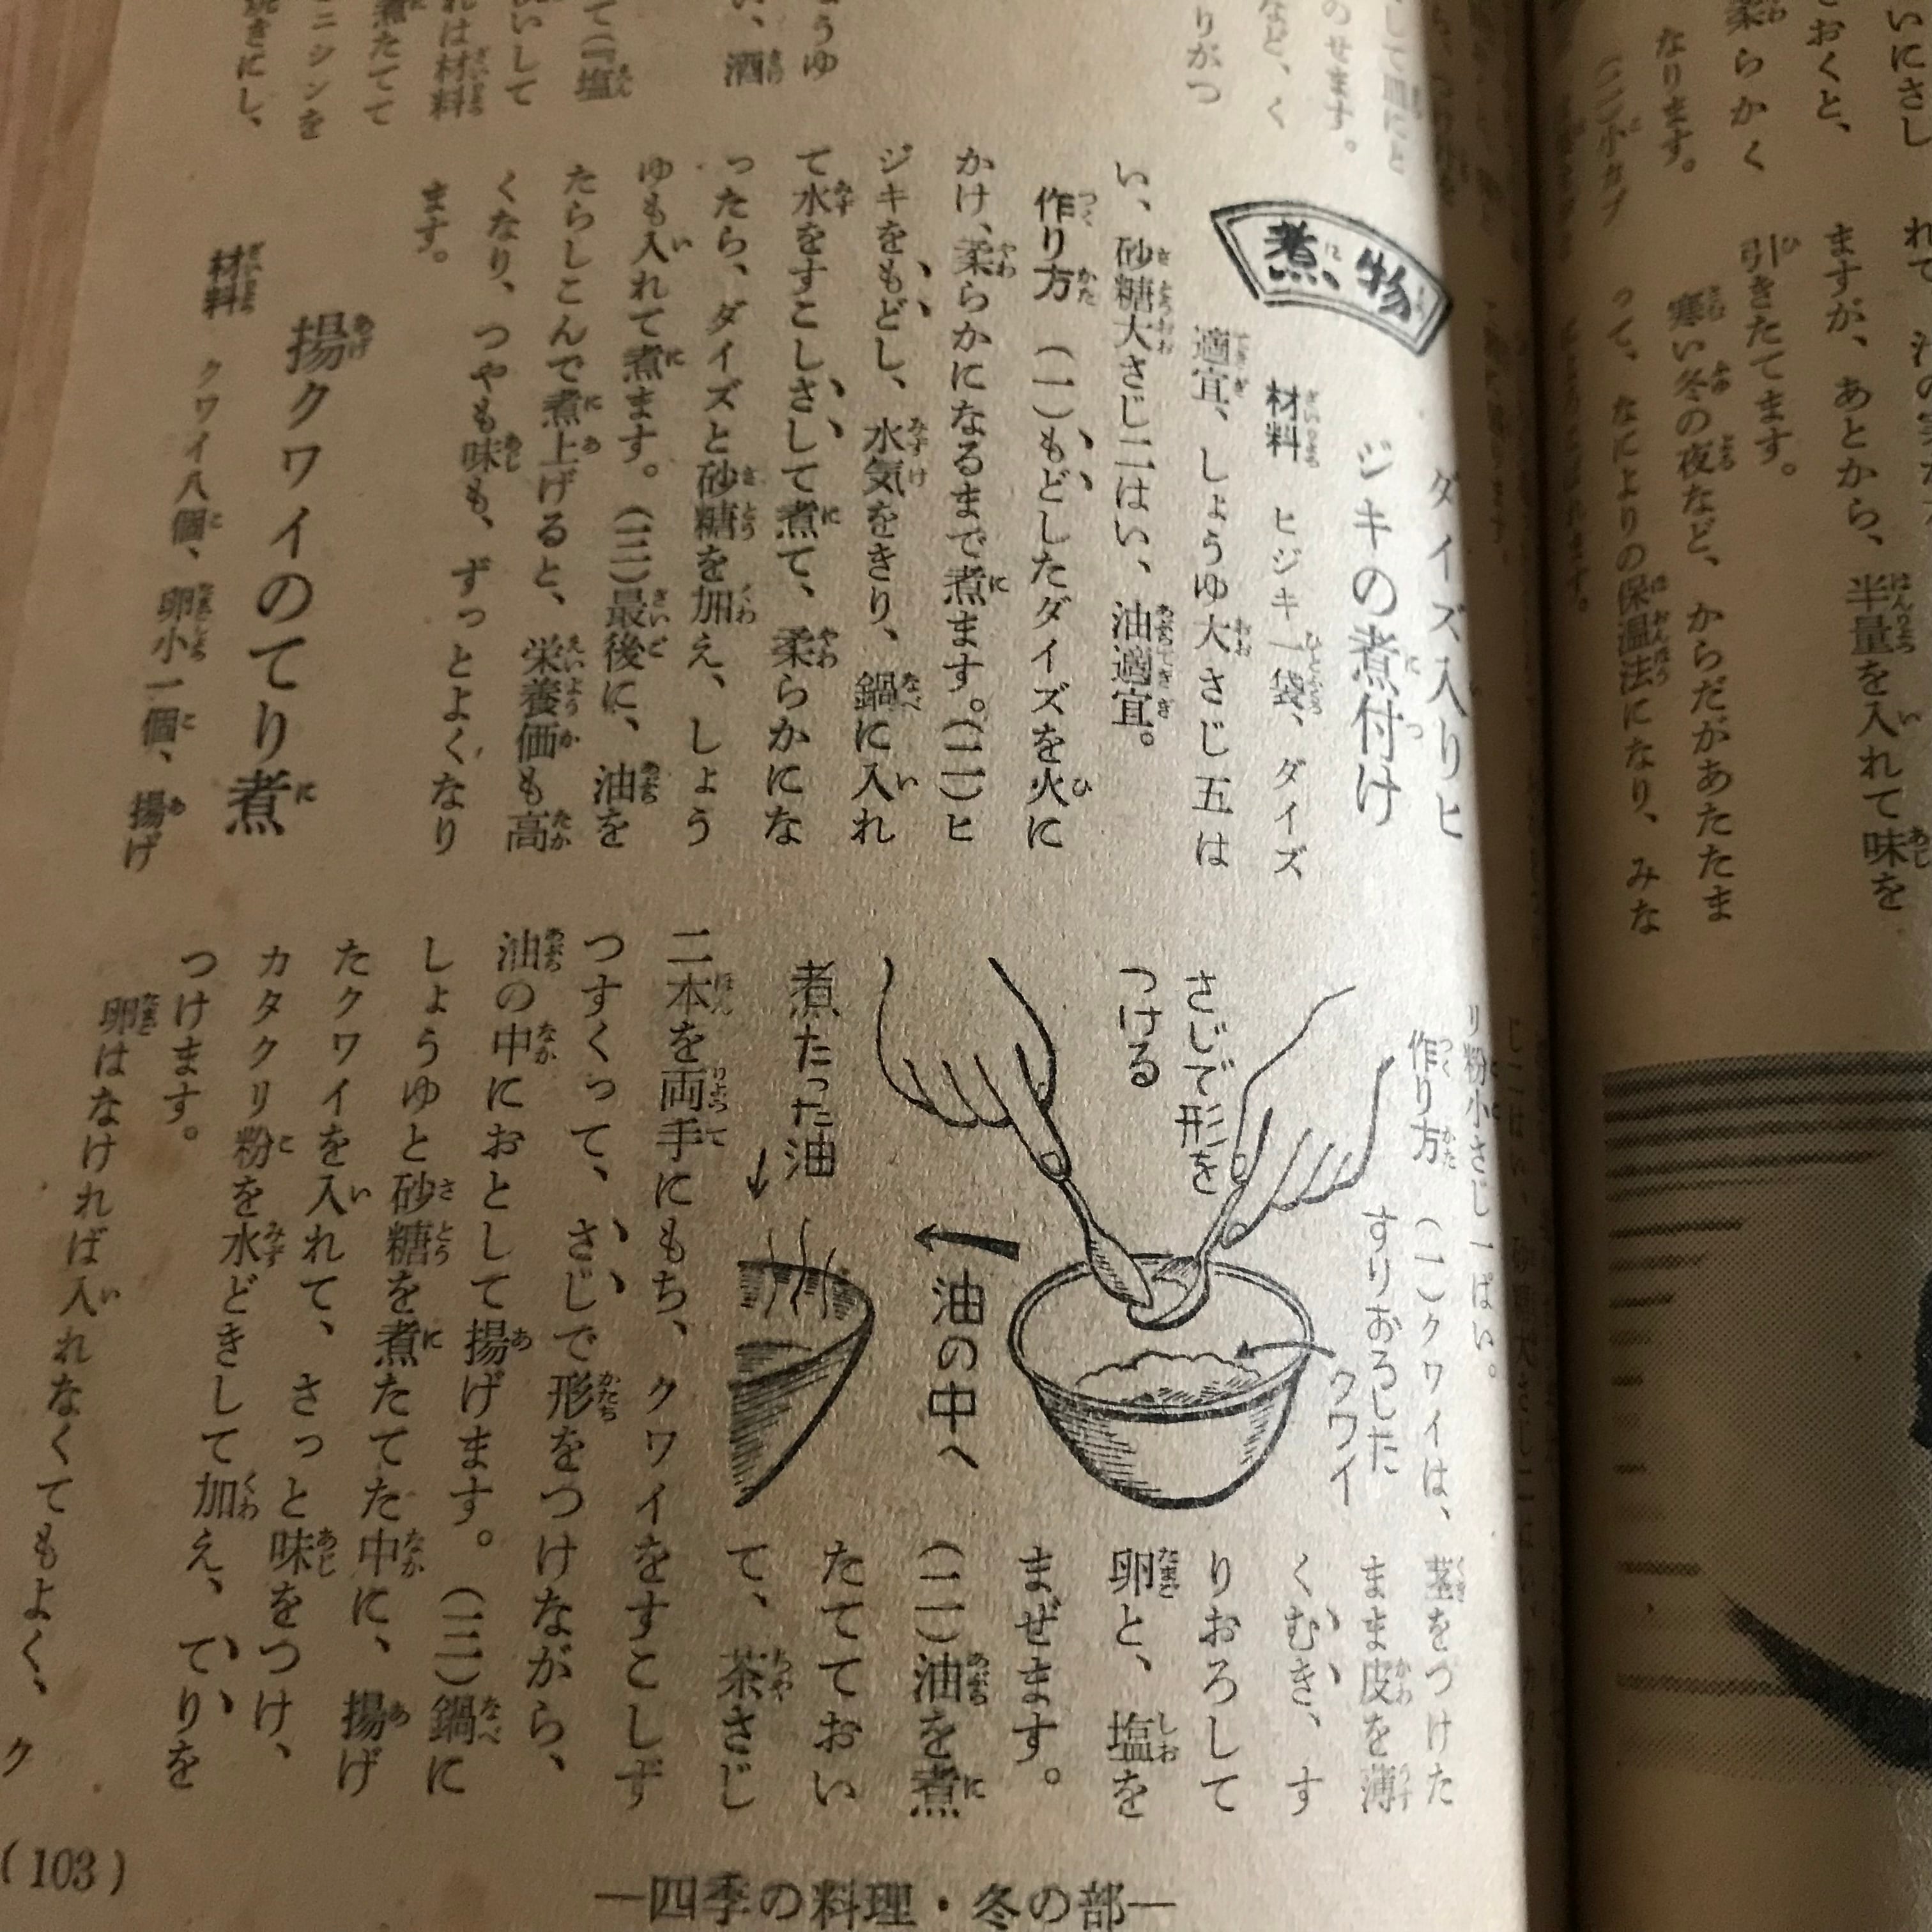 いにさし
ておくと、
柔らかく
なります。
(二)小カブ
ますが、あとから、半量を入れて味を
引きたてます。
寒い冬の夜など、からだがあたたま
って、なによりの保温法になり、みな
のせます。
など、く
りがつ
うゆ
い、酒
て(『塩
れは材料
煮たてて
ニシンを
焼きにし、
煮物
ダイズ入りヒ
ジキの煮付け
材料 ヒジキ一袋、ダイズ
適宜、しょうゆ大さじ五は
い、砂糖大さじ二はい、油適宜。
作り方 (一)もどしたダイズを火に
かけ、柔らかになるまで煮ます。(二)ヒ
ジキをもどし、水気をきり、鍋に入れ
て水をすこしさして煮て、柔らかにな
ったら、ダイズと砂糖を加え、しょう
ゆも入れて煮ます。(三)最後に、油を
たらしこんで煮上げると、栄養価も高
くなり、つやも味も、ずっとよくなり
ます。
揚クワイのてり煮
材料 クワイ八個、卵小一個、揚げ
リ粉小さじ一ぱい。
作り方 (一)クワイは、
茎をつけた
まま皮を薄
くむき、す
りおろして
卵と、塩を
まぜます。
(二)油を煮
たてておい
て、茶さじ
すりおろした
クワイ
さじで形を
つける
油の中へ
煮たった油
二本を両手にもち、クワイをすこしず
つすくって、さじで形をつけながら、
油の中におとして揚げます。(三)鍋に
しょうゆと砂糖を煮たてた中に、揚げ
たクワイを入れて、さっと味をつけ、
カタクリ粉を水どきして加え、てりを
つけます。
卵はなければ入れなくてもよく、ク
―四季の料理・冬の部―
(103)